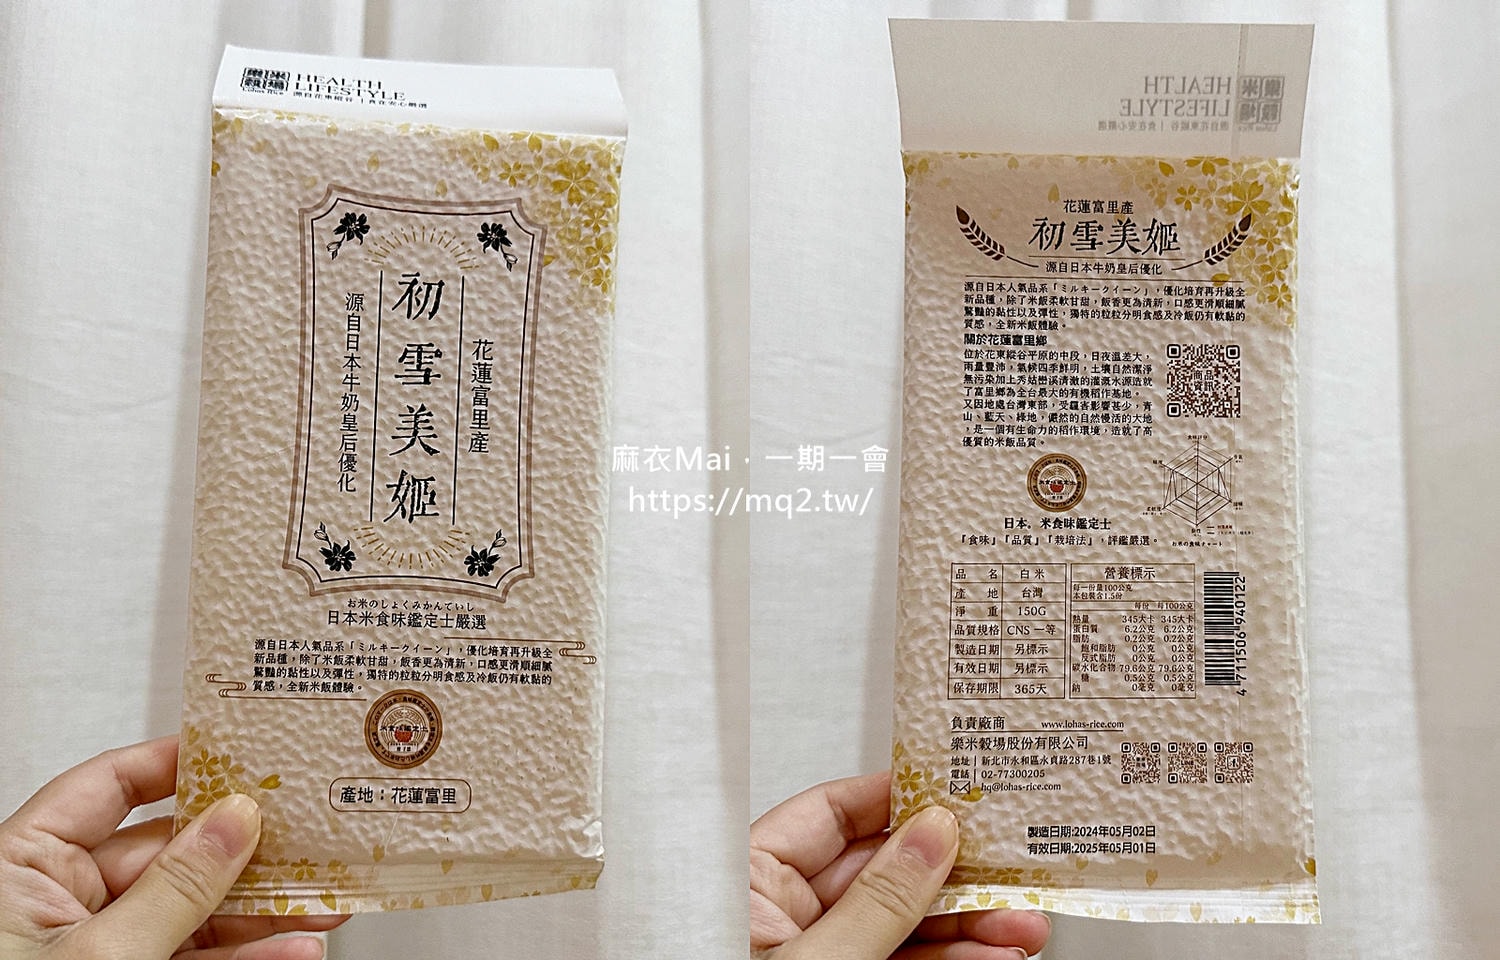 樂米穀場
Lohas Rice
HEALTH
LIFESTYLE
源自花東縱谷 | 食在安心嚴選
花蓮富里產
初雪美姬
源自日本牛奶皇后優化
お米のしょくみかんていし
日本米食味鑑定士嚴選
源自日本人氣品系「ミルキークイーン」，優化培育再升級全
新品種，除了米飯柔軟甘甜，飯香更為清新，口感更滑順細膩
驚豔的黏性以及彈性，獨特的粒粒分明食感及冷飯仍有軟黏的
質感，全新米飯體驗。
米食味鑑定士
產地：花蓮富里
麻衣Mai．一期一會
https://mq2.tw/
HEALTH
LIFESTYLE
源自花東縱谷 | 食在安心嚴選
樂米穀場
Lohas Rice
花蓮富里產
初雪美姬
源自日本牛奶皇后優化
源自日本人氣品系「ミルキークイーン」，優化培育再升級全
新品種，除了米飯柔軟甘甜，飯香更為清新，口感更滑順細膩
驚豔的黏性以及彈性，獨特的粒粒分明食感及冷飯仍有軟黏的
質感，全新米飯體驗。
關於花蓮富里鄉
位於花東縱谷平原的中段，日夜溫差大，
雨量豐沛，氣候四季鮮明，土壤自然潔淨
無污染加上秀姑巒溪清澈的灌溉水源造就
了富里鄉為全台最大的有機稻作基地。
又因地處台灣東部，受霾害影響甚少，青
山、藍天、綠地，儼然的自然慢活的大地
，是一個有生命力的稻作環境，造就了高
優質的米飯品質。
商品
資訊
米食味鑑定士
日本。米食味鑑定士
『食味』『品質』『栽培法』，評鑑嚴選。
お米の食味チャート
品名 白米
產地 台灣
淨重 150G
品質規格 CNS 一等
製造日期 另標示
有效日期 另標示
保存期限 365天
營養標示
每一份量100公克
本包裝含1.5份
每份 每100公克
熱量 345大卡 345大卡
蛋白質 6.2公克 6.2公克
脂肪 0.2公克 0.2公克
飽和脂肪 0公克 0公克
反式脂肪 0公克 0公克
碳水化合物 79.6公克 79.6公克
糖 0.5公克 0.5公克
鈉 0毫克 0毫克
4 711506 940122
負責廠商 www.lohas-rice.com
樂米穀場股份有限公司
地址 | 新北市永和區永貞路287巷1號
電話 | 02-77300205
hq@lohas-rice.com
製造日期:2024年05月02日
有效日期:2025年05月01日